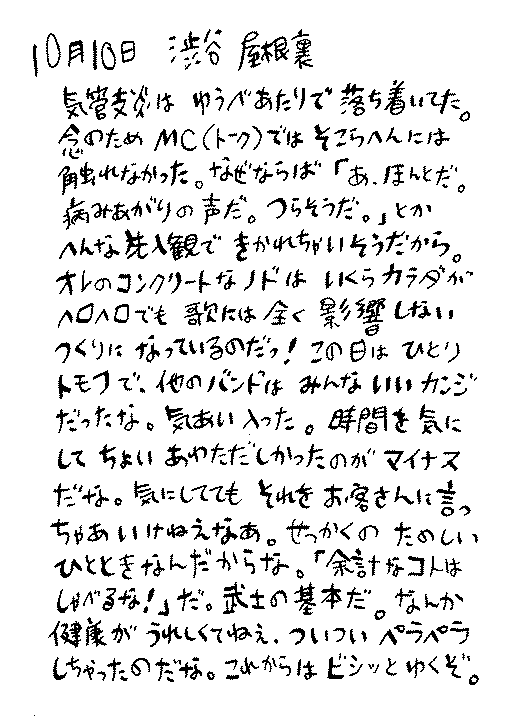 10月10日 渋谷 屋根裏
気管支炎は ゆうべあたりで 落ち着いてた。
念のため MC(トーク)では そこらへんには
触れなかった。なぜならば「あ、ほんとだ。
病みあがりの声だ。つらそうだ。」とか
へんな先入観で きかれちゃいそうだから。
オレのコンクリートなノドは いくらカラダが
ヘロヘロでも 歌には全く影響しない
つくりに なっているのだっ!この日は ひとり
トモフで、他のバンドは みんないいカンジ
だったな。気あい入った。時間を気に
して ちょい あわただしかったのが マイナス
だな。気にしてても それを お客さんに言っ
ちゃあいけねえなあ。せっかくの たのしい
ひとときなんだからな。「余計なコトは
しゃべるな!」だ。武士の基本だ。なんか
健康が うれしくてねえ、ついつい ペラペラ
しちゃったのだな。これからは ビシッとゆくぞ。